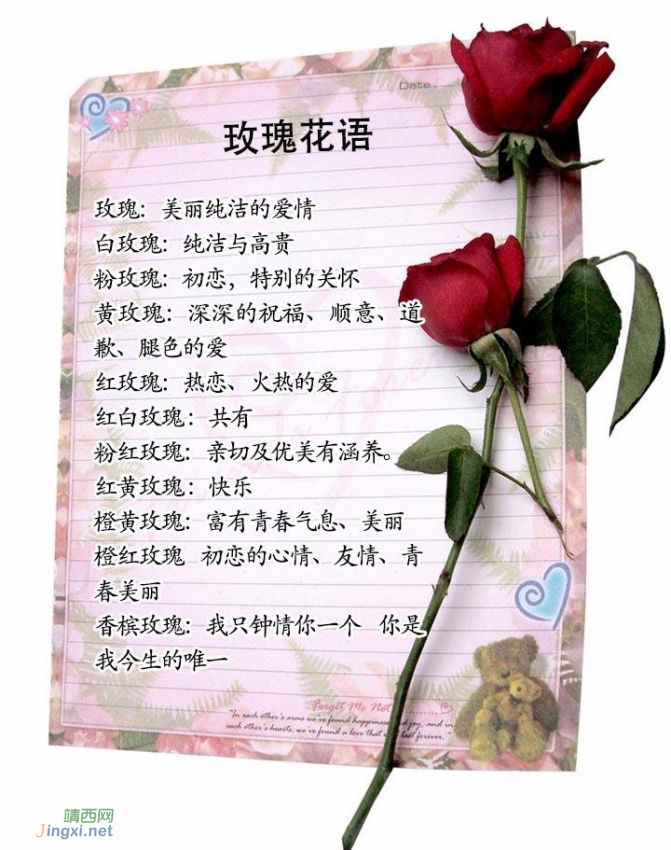 Date
玫瑰花语
玫瑰：美丽纯洁的爱情
白玫瑰：纯洁与高贵
粉玫瑰：初恋，特别的关怀
黄玫瑰：深深的祝福、顺意、道
歉、腿色的爱
红玫瑰：热恋、火热的爱
红白玫瑰：共有
粉红玫瑰：亲切及优美有涵养。
红黄玫瑰：快乐
橙黄玫瑰：富有青春气息、美丽
橙红玫瑰 初恋的心情、友情、青
春美丽
香槟玫瑰：我只钟情你一个 你是
我今生的唯一
Forget Me Not
"In each other's arms we've found happiness and joy, and in
each other's hearts, we've found a love that will last forever."
靖西网
Jingxi.net